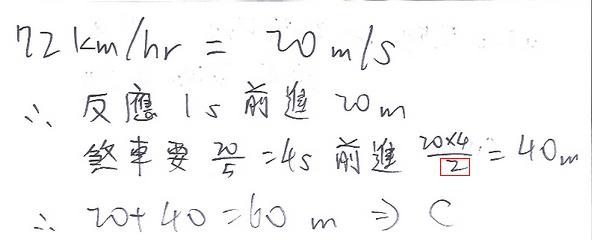 72 km/hr = 20 m/s
∴ 反應 1s 前進 20m
煞車要 20/5 = 4s 前進 20×4/2 = 40m
∴ 20+40=60 m ⇒ C